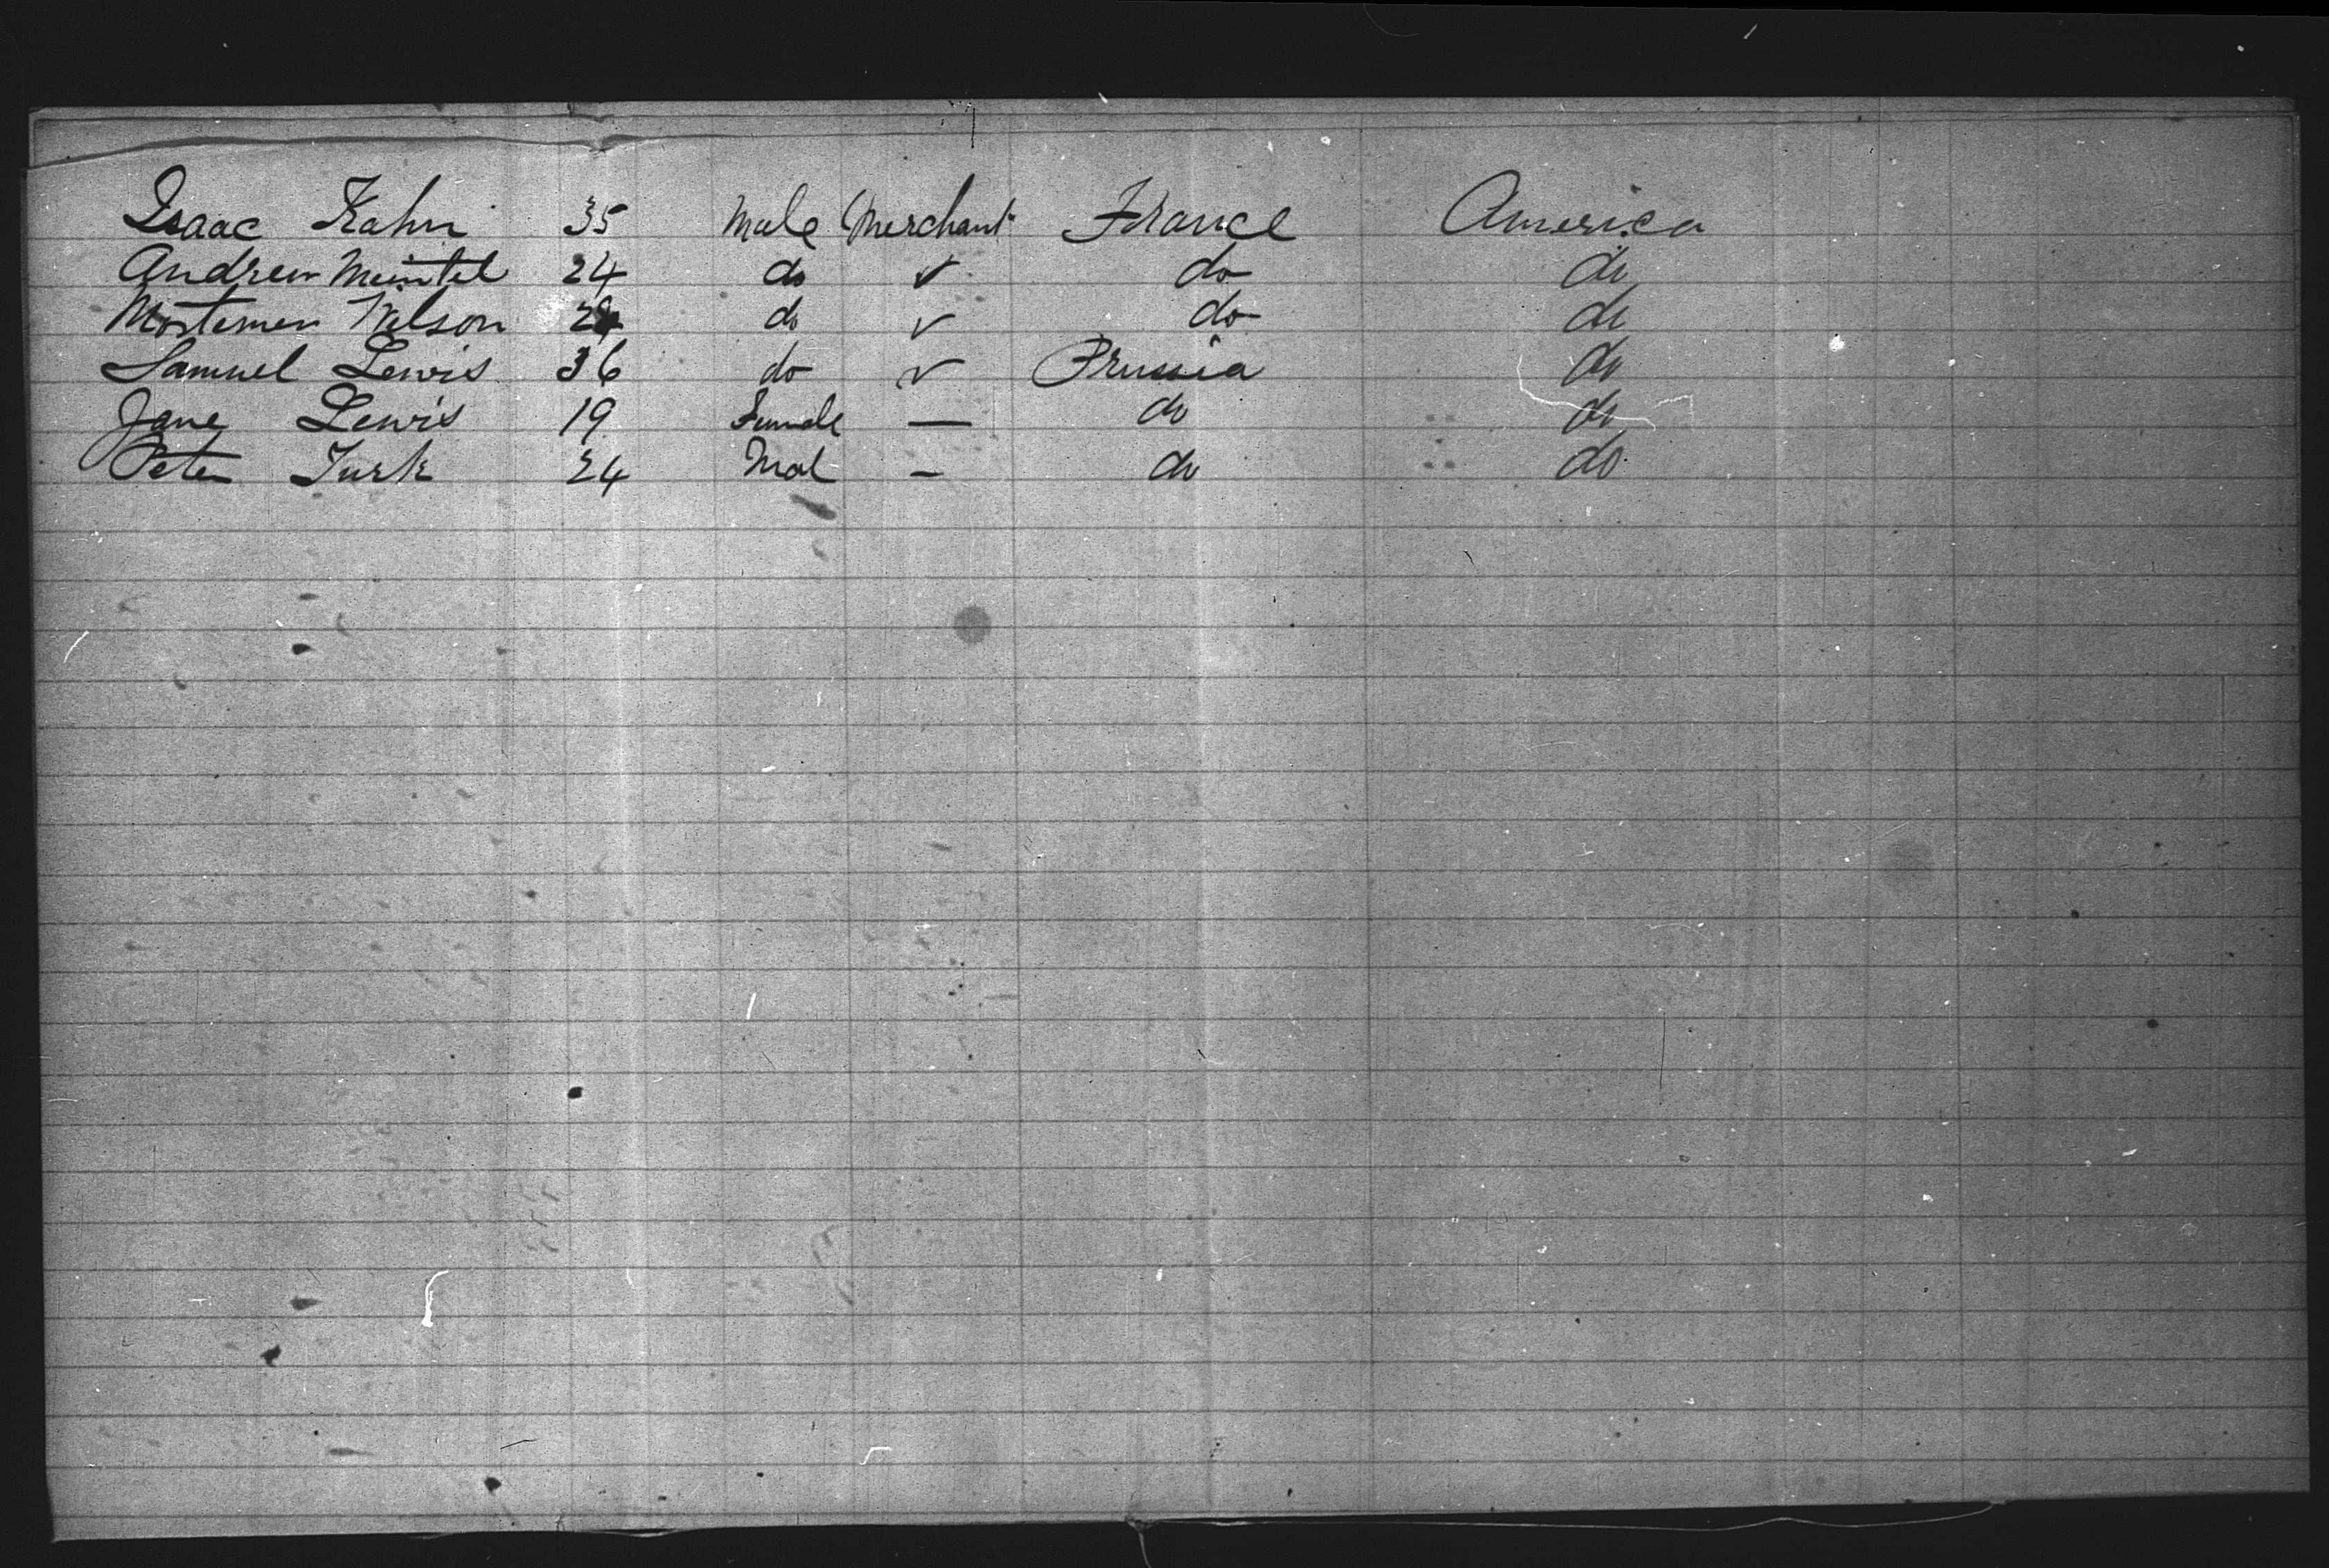 Isaac Kahn 35 Male Merchant France America
Andrew Meintel 24 do ✓ do do
Mortemer Nelson do ✓ do do
Samuel Lewis 36 do ✓ Prussia do
Jane Lewis 19 Female — do do
Peter Turk 24 Mal — do do